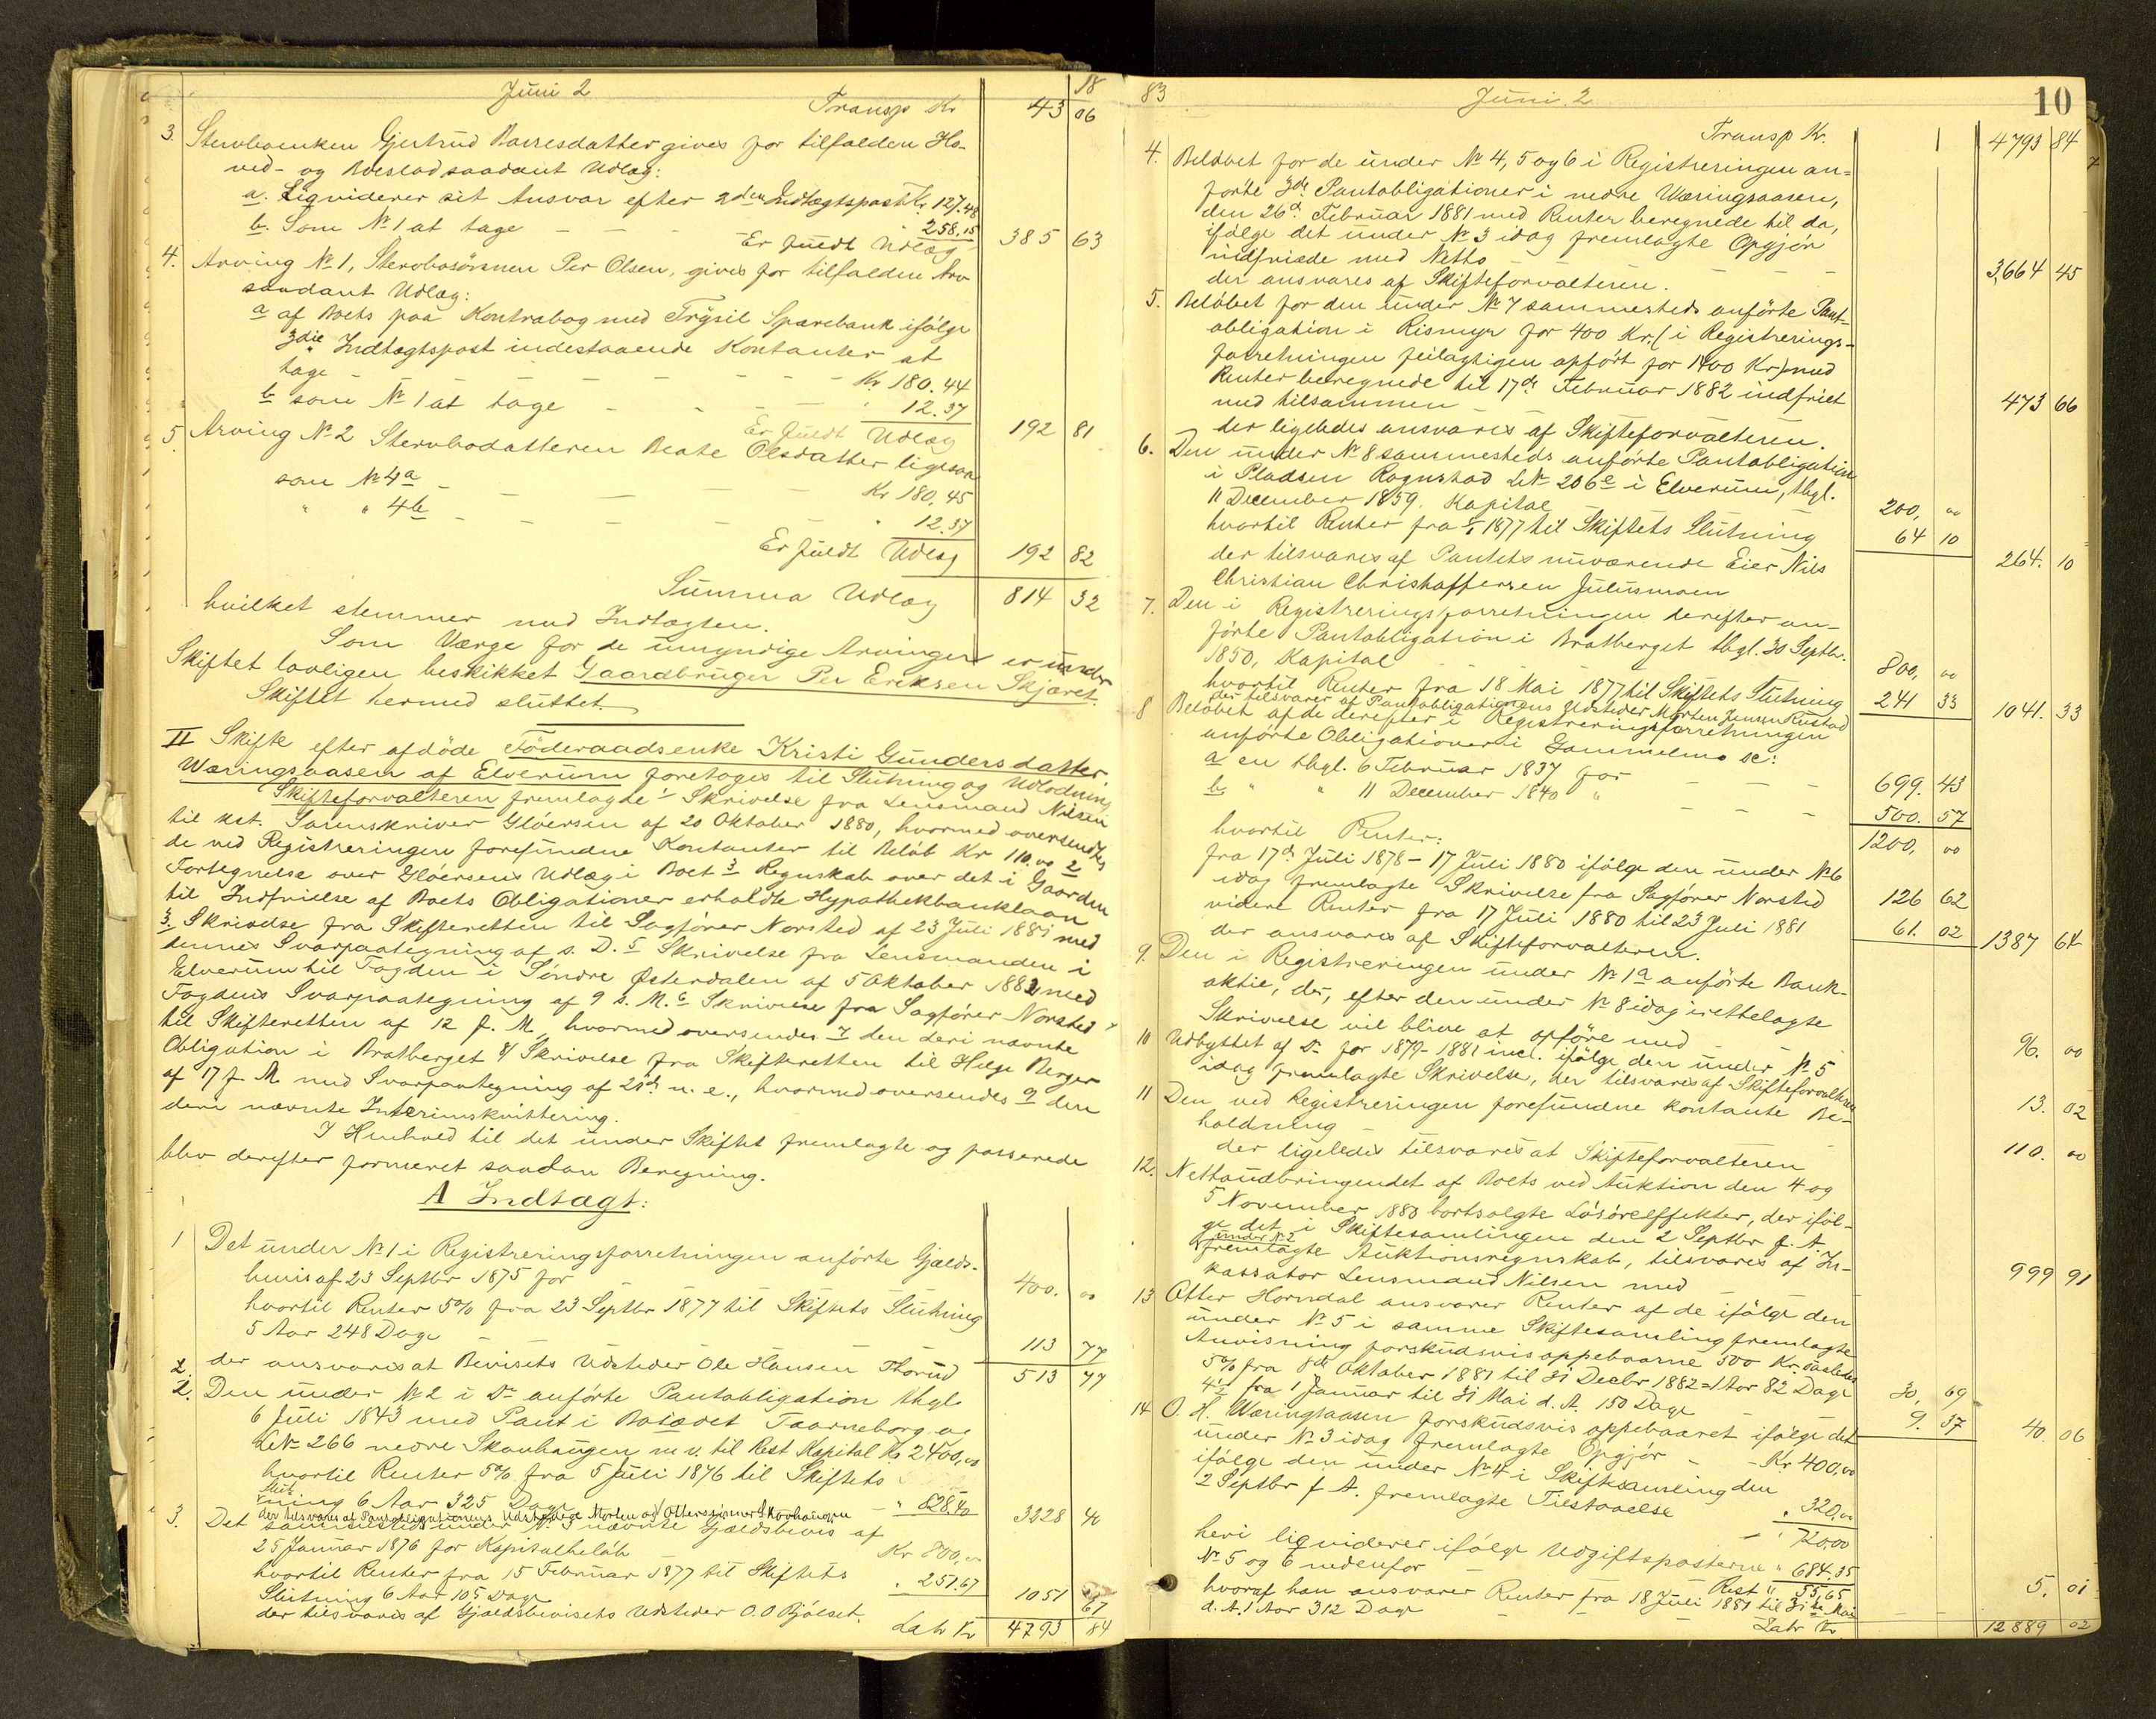 18
Juni 2
Transp Kr 43 06
3. Stervboenken Gjertrud Baresdatter gives for tilfalden Ho-
ved- og Boeslod saadant Udlæg:
a. Liqviderer sit Ansvar efter 2den Indtægtspost Kr. 127.48
b. Som № 1 at tage - - - " 258.15
Er fuldt Udlæg 385 63
4. Arving № 1, Stervbosönnen Per Olsen, gives for tilfalden Arv
saadant Udlæg:
a af Boets paa Kontrabog med Trysil Sparebank ifölge
3die Indtægtspost indestaaende Kontanter at
tage - - - - - Kr. 180.44
b som № 1 at tage - - - " 12.37
Er fuldt Udlæg 192 81
5. Arving № 2 Stervbodatteren Beate Olsdatter ligesaa
som № 4a - - - - Kr 180.45
" " 4b - - - - " 12.37
Er fuldt Udlæg 192 82
Summa Udlæg 814 32
hvilket stemmer med Indtægten.
Som Værge for de umyndige Arvinger er under
Skiftet lovligen beskikket Gaardbruger Per Eriksen Skjæret.
Skiftet hermed sluttet.
II Skifte efter afdöde Föderaadsenke Kristi Gundersdatter
Væringsaasen af Elverum foretoges til Slutning og Udlodning
Skifteforvalteren fremlagde 1 Skrivelse fra Lensmand Nilsen
til kst. Sorenskriver Glöersen af 20 Oktober 1880, hvormed oversendtes
de ved Registreringen forefundne Kontanter til Belöb Kr 110,00 2
Fortegnelse over Glöersens Udlæg i Boet 3 Regnskab over det i Gaarden
til Indfrielse af Boets Obligationer erholdte Hypothekbanklaan
3. Skrivelse fra Skifteretten til Sagförer Norsted af 23 Juli 1881 med
dennes Svarpaategning af s. D. 5 Skrivelse fra Lensmanden i
Elverum til Fogden i Söndre Østerdalen af 5 Oktober 1882 med
Fogdens Svarpaategning af 9 s. M. 6 Skrivelse fra Sagförer Norsted
til Skifteretten af 12 f. M. hvormed oversendes 7 den deri nævnte
Obligation i Bratberget 8/ Skrivelse fra Skifteretten til Helge Berger
af 17 f. M. med Svarpaategning af 21de n. e., hvormed oversendes 9 den
deri nævnte Interimskvittering.
I Henhold til det under Skiftet fremlagte og passerede
blev derefter formeret saadan Beregning.
A Indtægt:
1 Det under № 1 i Registreringsforretningen anförte Gjælds-
bevis af 23 Septbr 1875 for - - 400. 00
hvortil Renter 5% fra 23 Septbr 1877 til Skiftets Slutning
5 Aar 248 Dage - 113 77
der ansvares at Bevisets Udsteder Ole Hansen Thorud 513 77
2. Den under № 2 i Do anförte Pantobligation thgl.
6 Juli 1843 med Pant i Taarneborg og
L№ 266 nedre Skavhaugen m. v. til Rest Kapital Kr 2400,00
hvortil Renter 5% fra 5 Juli 1876 til Skiftets
Slutning 6 Aar 325 Dage - " 828.40
der tilsvares af Pantobligationens Udstedere Morten og Otter Skavhaugen 3228 40
3. Det sammesteds under № 3 nævnte Gjældsbevis af
25 Januar 1876 for Kapitalbelöb Kr 800,00
hvortil Renter fra 15 Februar 1877 til Skiftets
Slutning 6 Aar 105 Dage " 251.67
der tilsvares af Gjældsbevisets Udsteder O. O Bjölset. 1051 67
Latr Kr 4793 84
83
Juni 2
10
Transp Kr. 4793 84
4. Belöbet for de under № 4, 5 og 6 i Registreringen an-
förte 3de Pantobligationer i nedre Væringsaasen,
den 26de Februar 1881 med Renter beregnede til da,
ifölge det under № 3 idag fremlagte Opgjör
indfriede med Netto - - - - 3,664 45
der ansvares af Skifteforvalteren.
5. Belöbet for den under № 7 sammesteds anförte Pant-
obligation i Rismyr for 400 Kr. (i Registrerings-
forretningen feilagtigen opfört for 1400 Kr) med
Renter beregnede til 17de Februar 1882 indfriet
med tilsammen 473 66
der ligeledes ansvares af Skifteforvalteren.
6. Den under № 8 sammesteds anförte Pantobligation
i Pladsen Rognstad L№ 206e i Elverum, thgl.
11 December 1859. Kapital 200, 00
hvortil Renter fra 1877 til Skiftets Slutning 64 10
der tilsvares af Pantets nuværende Eier Nils 264. 10
Christian Christoffersen Julusmoen
7. Den i Registreringsforretningen derefter an-
förte Pantobligation i Bratberget thgl. 30 Septbr.
1850, Kapital 800, 00
hvortil Renter fra 18 Mai 1877 til Skiftets Slutning 241 33
der tilsvares af Pantobligationens Udsteder Morten Jensen Rustad 1041. 33
8 Belöbet af de derefter i Registreringsforretningen
anförte Obligationer i Gammelmo sc:
a en thgl. 6 Februar 1837 for - - - 699. 43
b " " 11 December 1840 " - - - 500. 57
1200, 00
hvortil Renter:
fra 17de Juli 1878 - 17 Juli 1880 ifölge den under № 6
idag fremlagte Skrivelse fra Sagförer Norsted 126 62
videre Renter fra 17 Juli 1880 til 23 Juli 1881 61. 02
der ansvares af Skifteforvalteren. 1387 64
9. Den i Registreringen under № 1a anförte Bank-
aktie, der, efter den under № 8 idag irettelagte
Skrivelse vil blive at opföre med 96. 00
10 Udbyttet af Do for 1879-1881 incl. ifölge den under № 5
idag fremlagte Skrivelse, der tilsvares af Skifteforvalteren 13. 02
11 Den ved Registreringen forefundne kontante Be-
holdning - 110. 00
der ligeledes tilsvares at Skifteforvalteren
12. Nettoudbringendet af Boets ved Auktion den 4 og
5 November 1880 bortsolgte Lösöreeffekter, der iföl-
ge det i Skiftesamlingen den 2 Septbr f. A.
under № 2
fremlagte Auktionsregnskab, tilsvares af In-
kassator Lensmand Nilsen med 999 91
13 Otter Horndal ansvarer Renter af de ifölge den
under № 5 i samme Skiftesamling fremlagte
Anvisning forskudsvis oppebaarne 500 Kr. saaledes
5% fra 8de Oktober 1881 til 31 Decbr 1882 = 1 Aar 82 Dage 30, 69
4½ fra 1 Januar til 31 Mai d. A. 150 Dage 9. 37
40. 06
14. O. H. Væringsaasen forskudsvis oppebaaret ifölge det
under № 3 idag fremlagte Opgjör - - Kr 400,00
ifölge den under № 4 i Skiftesamling den
2 Septbr f A. fremlagte Tilstaaelse " 320,00
- " 720,00
heri liqviderer ifölge Udgiftsposterne " 684.35
№ 5 og 6 nedenfor Rest " 35,65
hvoraf han ansvarer Renter fra 18 Juli 1881 til 31te Mai
d. A. 1 Aar 312 Dage 5. 01
Latr Kr 12889 02